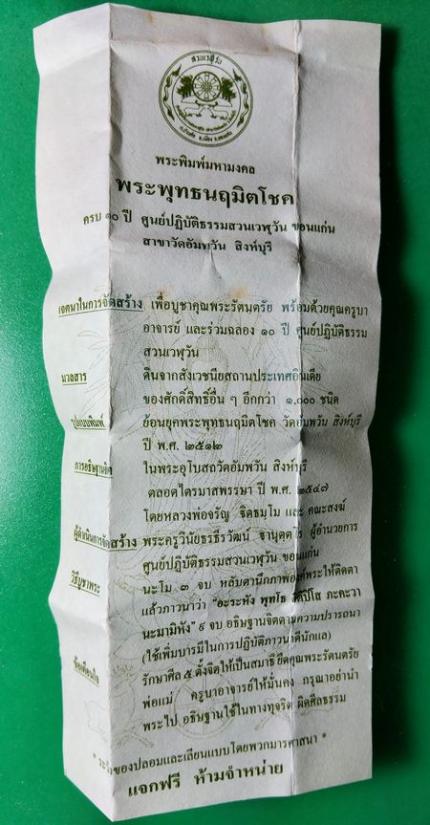 สวนเวฬุวัน
พระพิมพ์มหามงคล
พระพุทธนฤมิตโชค
ครบ ๑๐ ปี ศูนย์ปฏิบัติธรรมสวนเวฬุวัน ขอนแก่น
สาขาวัดอัมพวัน สิงห์บุรี
เจตนาในการจัดสร้าง เพื่อบูชาคุณพระรัตนตรัย พร้อมด้วยคุณครูบา
อาจารย์ และร่วมฉลอง ๑๐ ปี ศูนย์ปฏิบัติธรรม
สวนเวฬุวัน
มวลสาร ดินจากสังเวชนียสถานประเทศอินเดีย
ของศักดิ์สิทธิ์อื่น ๆ อีกกว่า ๑,๐๐๐ ชนิด
รูปแบบพิมพ์ ย้อนยุคพระพุทธนฤมิตโชค วัดอัมพวัน สิงห์บุรี
ปี พ.ศ. ๒๕๑๒
การอธิษฐานจิต ในพระอุโบสถวัดอัมพวัน สิงห์บุรี
ตลอดไตรมาสพรรษา ปี พ.ศ. ๒๕๔๗
โดยหลวงพ่อจรัญ ฐิตธมฺโม และ คณะสงฆ์
ผู้ดำเนินการจัดสร้าง พระครูวินัยธรธีรวัฒน์ ฐานุตฺตโร ผู้อำนวยการ
ศูนย์ปฏิบัติธรรมสวนเวฬุวัน ขอนแก่น
วิธีบูชาพระ นะโม ๓ จบ หลับตานึกภาพองค์พระให้ติดตา
แล้วภาวนาว่า "อะระหัง พุทโธ อิติปิโส ภะคะวา
นะมามิหัง" ๙ จบ อธิษฐานจิตตามความปรารถนา
(ใช้เพิ่มบารมีในการปฏิบัติภาวนาดีนักแล)
ข้อเตือนใจ รักษาศีล ๕ ตั้งจิตให้เป็นสมาธิ ยึดคุณพระรัตนตรัย
พ่อแม่ ครูบาอาจารย์ให้มั่นคง กรุณาอย่านำ
พระไป อธิษฐานใช้ในทางทุจริต ผิดศีลธรรม
* ระวังของปลอมและเลียนแบบโดยพวกมารศาสนา *
แจกฟรี ห้ามจำหน่าย